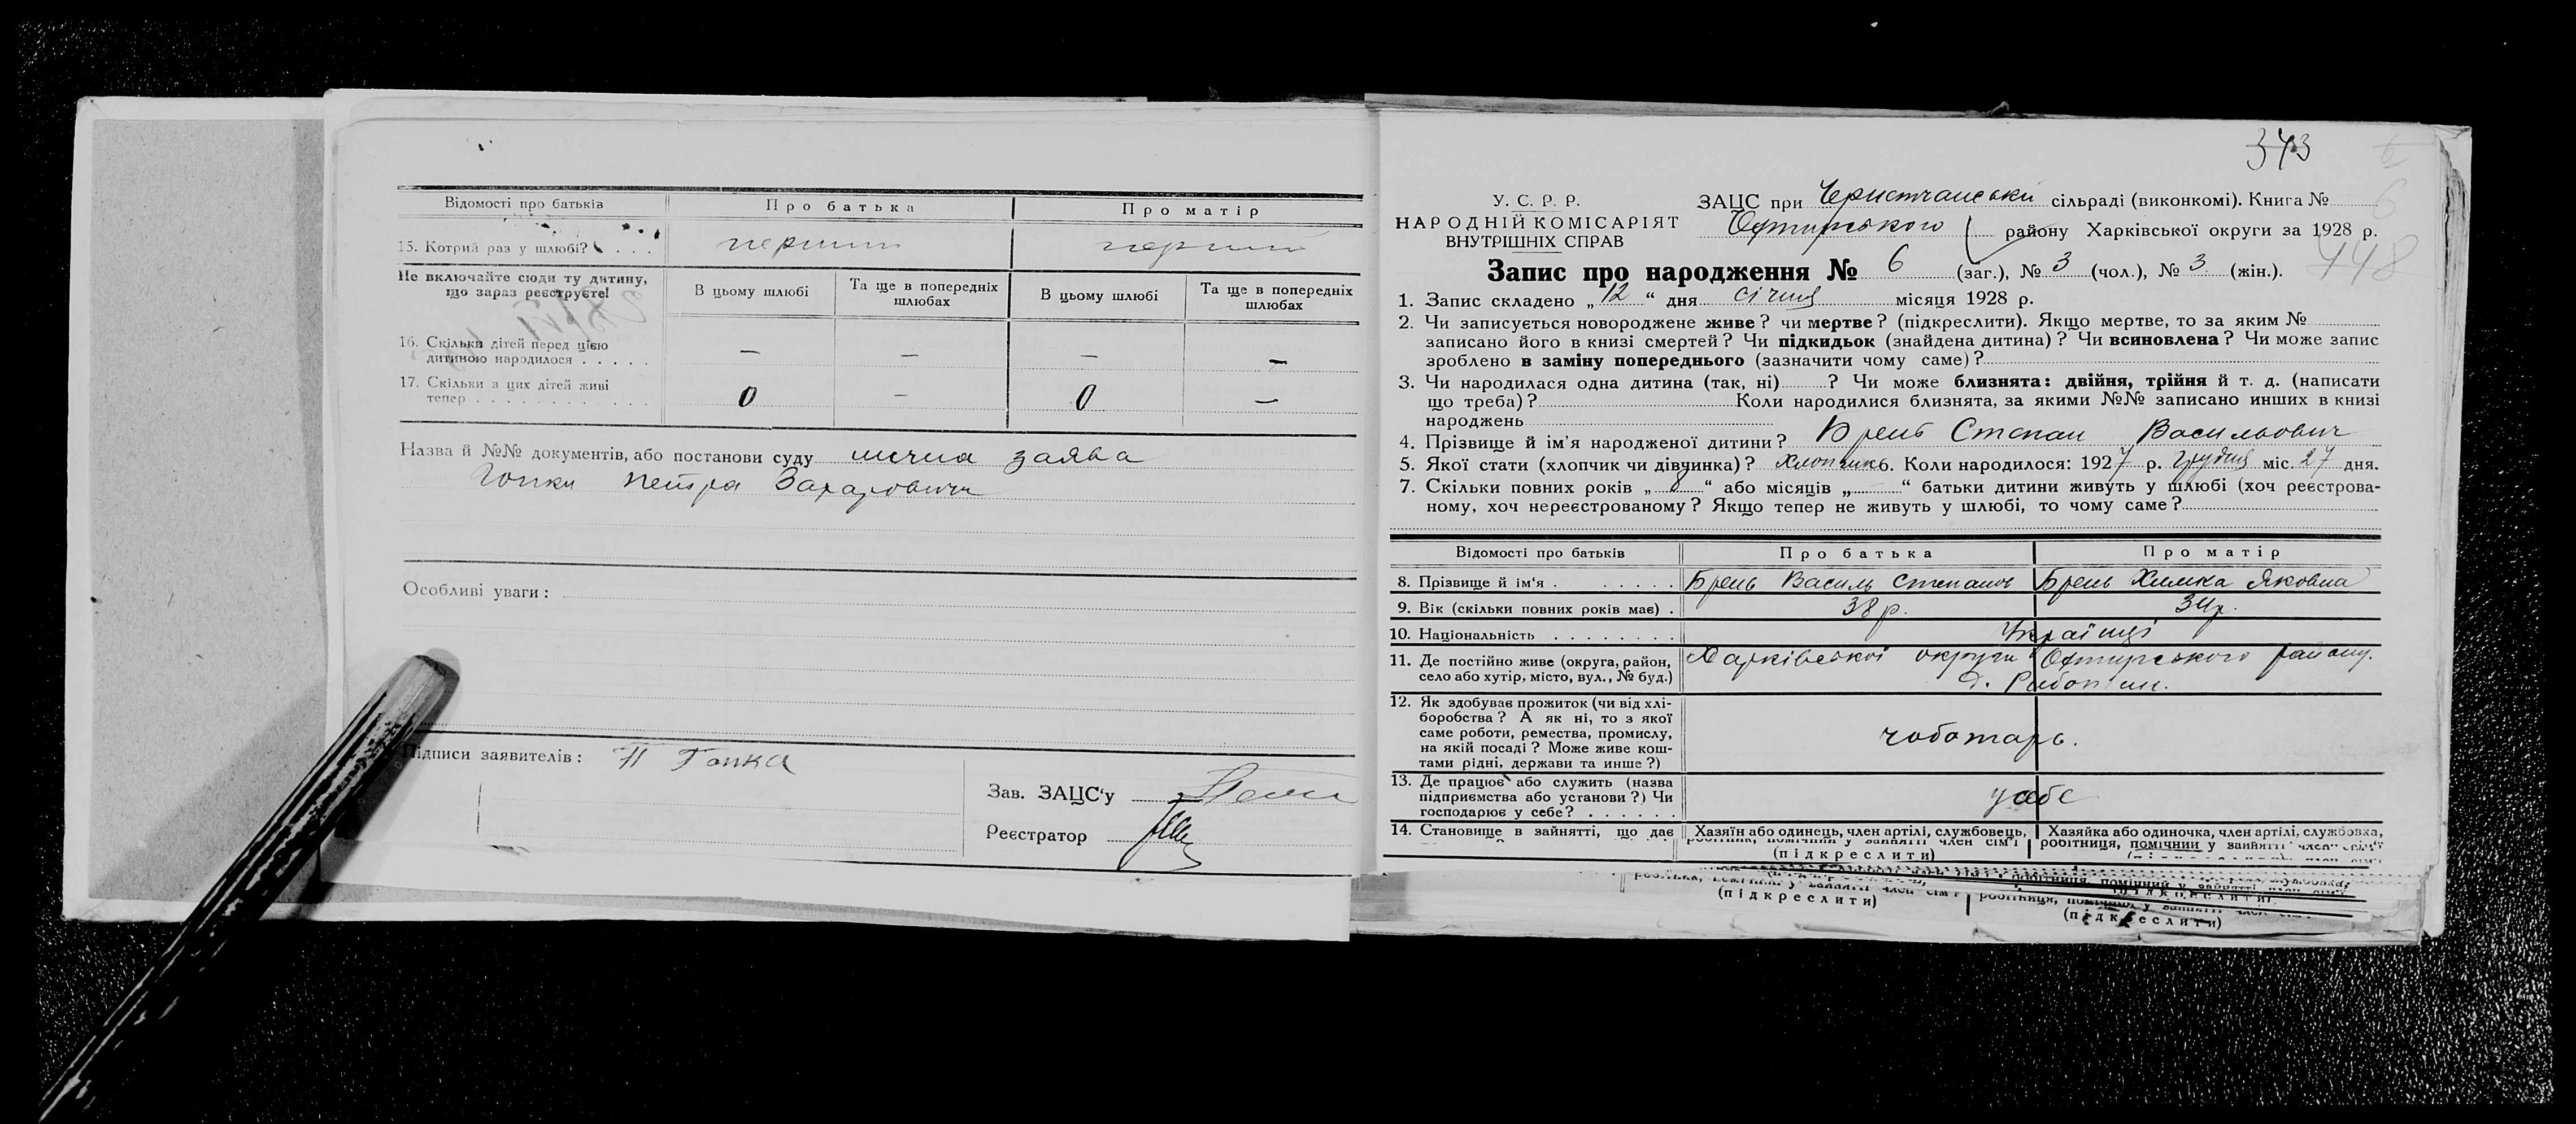 Відомості про батьків | Про батька | Про матір
15. Котрий раз у шлюбі? | перший | перший
Не включайте сюди ту дитину, що зараз реєструєте! | В цьому шлюбі | Та ще в попередніх шлюбах | В цьому шлюбі | Та ще в попередніх шлюбах
16. Скільки дітей перед цією дитиною народилося | — | — | — | —
17. Скільки з цих дітей живі тепер | 0 | — | 0 | —
Назва й №№ документів, або постанови суду заява
Гопки Петра Захаровича
Особливі уваги:
Підписи заявителів: П Гопка
Зав. ЗАЦС‘у
Реєстратор
343
6
У. С. Р. Р.
НАРОДНІЙ КОМІСАРІЯТ
ВНУТРІШНІХ СПРАВ
ЗАЦС при сільраді (виконкомі). Книга № 6
Охтирського району Харківської округи за 1928 р.
448
Запис про народження № 6 (заг.), № 3 (чол.), № 3 (жін.).
1. Запис складено „12“ дня січня місяця 1928 р.
2. Чи записується новороджене живе? чи мертве? (підкреслити). Якщо мертве, то за яким №
записано його в книзі смертей? Чи підкидьок (знайдена дитина)? Чи всиновлена? Чи може запис
зроблено в заміну попереднього (зазначити чому саме)?
3. Чи народилася одна дитина (так, ні) ? Чи може близнята: двійня, трійня й т. д. (написати
що треба)? Коли народилися близнята, за якими №№ записано инших в книзі
народжень
4. Прізвище й ім‘я народженої дитини? Брень Степан Васильович
5. Якої стати (хлопчик чи дівчинка)? Хлопчик 6. Коли народилося: 1927 р. грудня міс. 27 дня.
7. Скільки повних років „8“ або місяців „ “ батьки дитини живуть у шлюбі (хоч реєстрова-
ному, хоч нереєстрованому? Якщо тепер не живуть у шлюбі, то чому саме?
Відомості про батьків | Про батька | Про матір
8. Прізвище й ім‘я | Брень Василь Степанов | Брень Химка Яковна
9. Вік (скільки повних років має) | 38 р. | 34 р.
10. Національність | Українці
11. Де постійно живе (округа, район, село або хутір, місто, вул., № буд.) | Харківської округи Охтирського району.
12. Як здобуває прожиток (чи від хлі-
боробства? А як ні, то з якої
саме роботи, ремества, промислу,
на якій посаді? Може живе кош-
тами рідні, держави та инше?) | чоботарь.
13. Де працює або служить (назва
підприємства або установи?) Чи
господарює у себе? | у себе
14. Становище в зайнятті, що дає | Хазяїн або одинець, член артілі, службовець, | Хазяйка або одиночка, член артілі, службовка,
робітник, помічний у зайнятті член сім‘ї | робітниця, помічний у зайнятті член сім‘ї
(підкреслити)
(підкреслити)
(підкреслити)